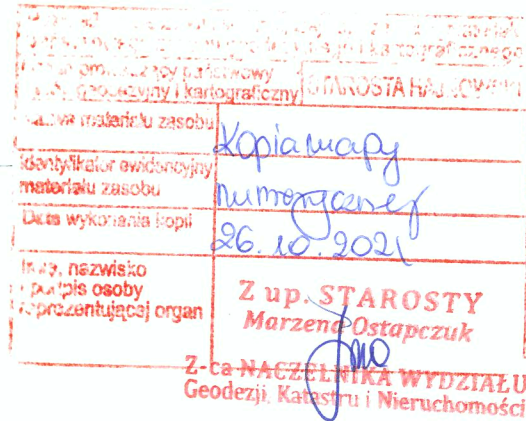 geodezyjnego i kartograficznego
państwowy
geodezyjny i kartograficzny STAROSTA HAJNOWSKI
materiału zasobu Kopia mapy
Identyfikator ewidencyjny
materiału zasobu numerycznej
Data wykonania kopii 26.10.2021
nazwisko
i podpis osoby
reprezentującej organ
Z up. STAROSTY
Marzena Ostapczuk
Z-ca NACZELNIKA WYDZIAŁU
Geodezji, Katastru i Nieruchomości